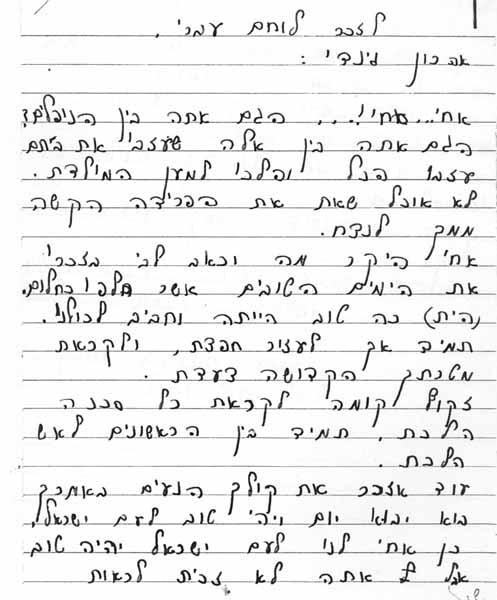 לזכר לוחם עברי,
אהרון גינדי:
אחי... אחי!... הגם אתה בין הנופלים?
הגם אתה בין אלה שעזבו את ביתם
עזבו הכל והלכו למען המולדת.
לא אוכל שאת את הפרידה הקשה
ממך לנצח.
אחי היקר מה יכאב לבי בזכרי
את הימים הטובים אשר חלפו כחלום.
(היית) כה טוב הייתה וחביב לכולנו.
תמיד אך לעזור חפצת, ולקראת
מטרתך הקדושה צעדת.
זקוף קומה לקראת כל סכנה
הלכת, תמיד בין הראשונים לאש
הלכת.
עוד אזכר את קולך הנעים באומרך
בוא יבוא יום ויהי טוב לעם ישראל,
כן אחי לנו לעם ישראל יהיה טוב
אבל אתה לא זכית לראות